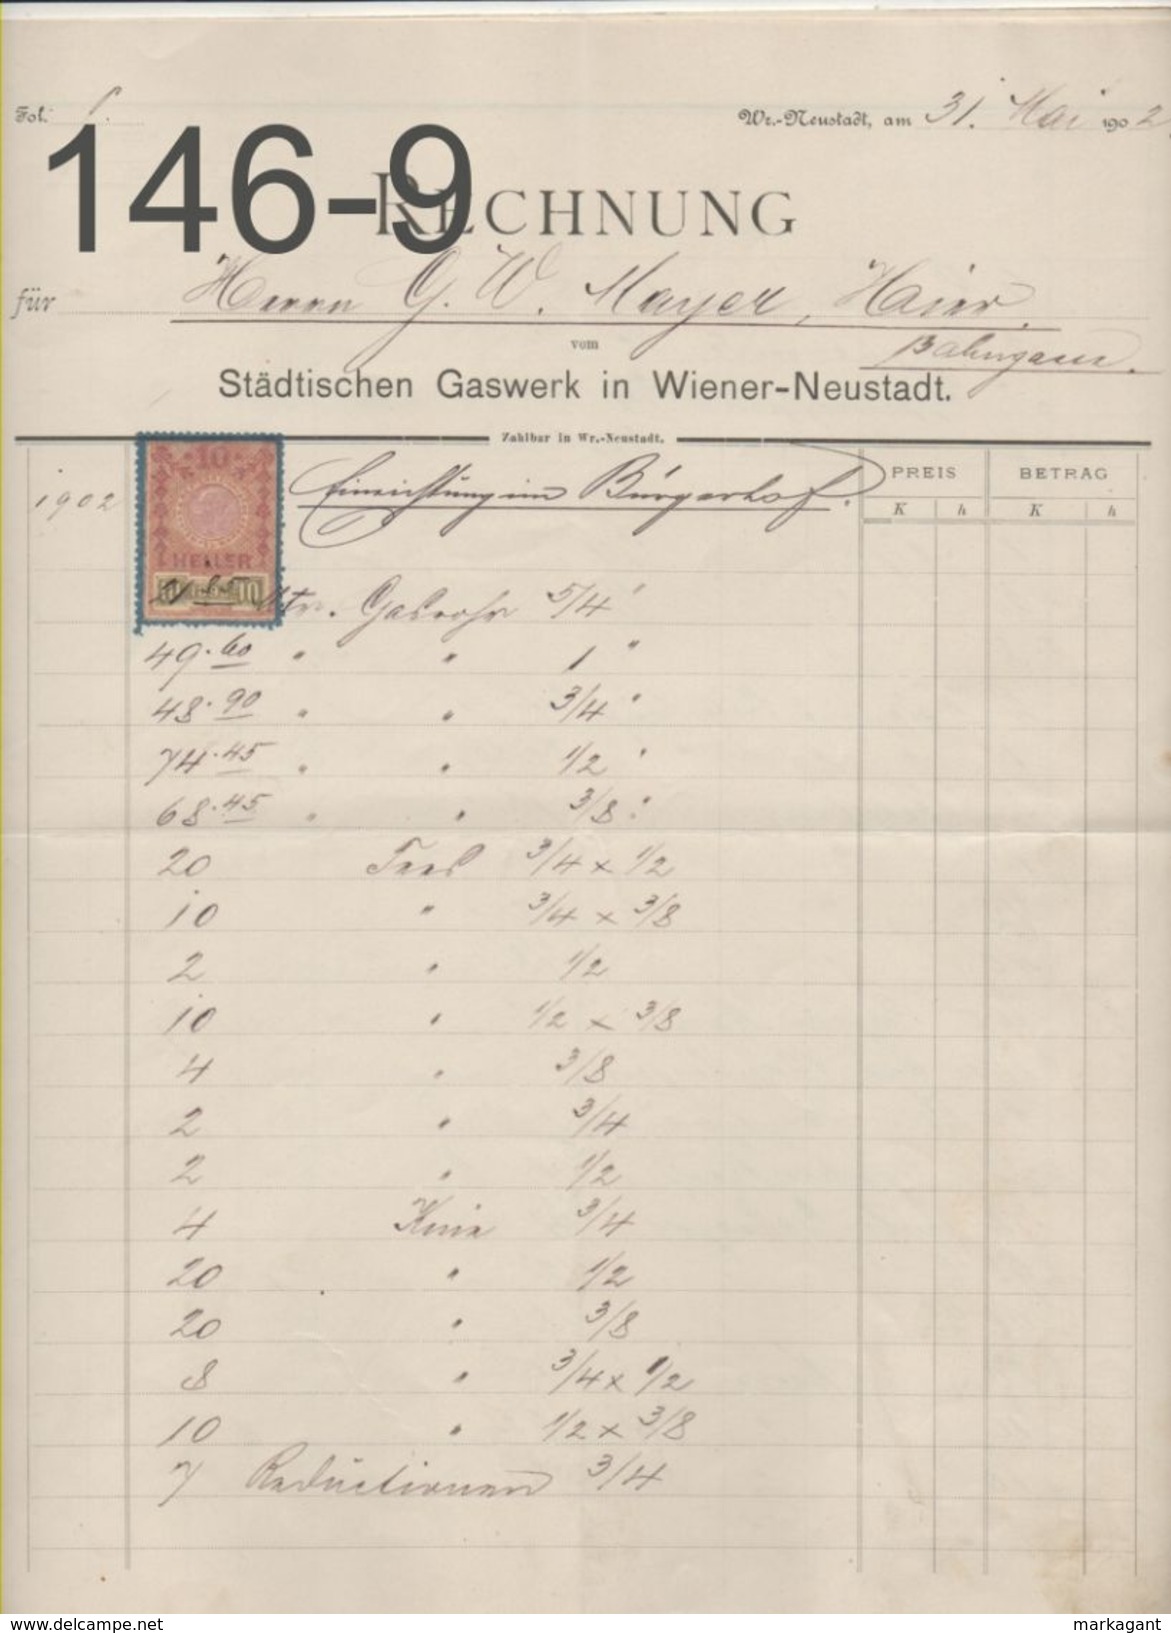 Fol. 1.
Wr.-Neustadt, am 31. Mai 1902
146-9
RECHNUNG
für Herrn G. W. Mayer, Hier.
vom Bahngasse.
Städtischen Gaswerk in Wiener-Neustadt.
Zahlbar in Wr.-Neustadt.
PREIS BETRAG
K h K h
1902 Einrichtung im Bürgerhof.
10
HELLER
10
Mtr. Gasrohr 5/4 "
49.60 " " 1 "
48.90 " " 3/4 "
74.45 " " 1/2 "
68.45 " " 3/8 "
20 Tees 3/4 x 1/2
10 " 3/4 x 3/8
2 " 1/2
10 " 1/2 x 3/8
4 " 3/8
2 " 3/4
2 " 1/2
4 Knie 3/4
20 " 1/2
20 " 3/8
8 " 3/4 x 1/2
10 " 1/2 x 3/8
7 Reductionen 3/4
www.delcampe.net markagant